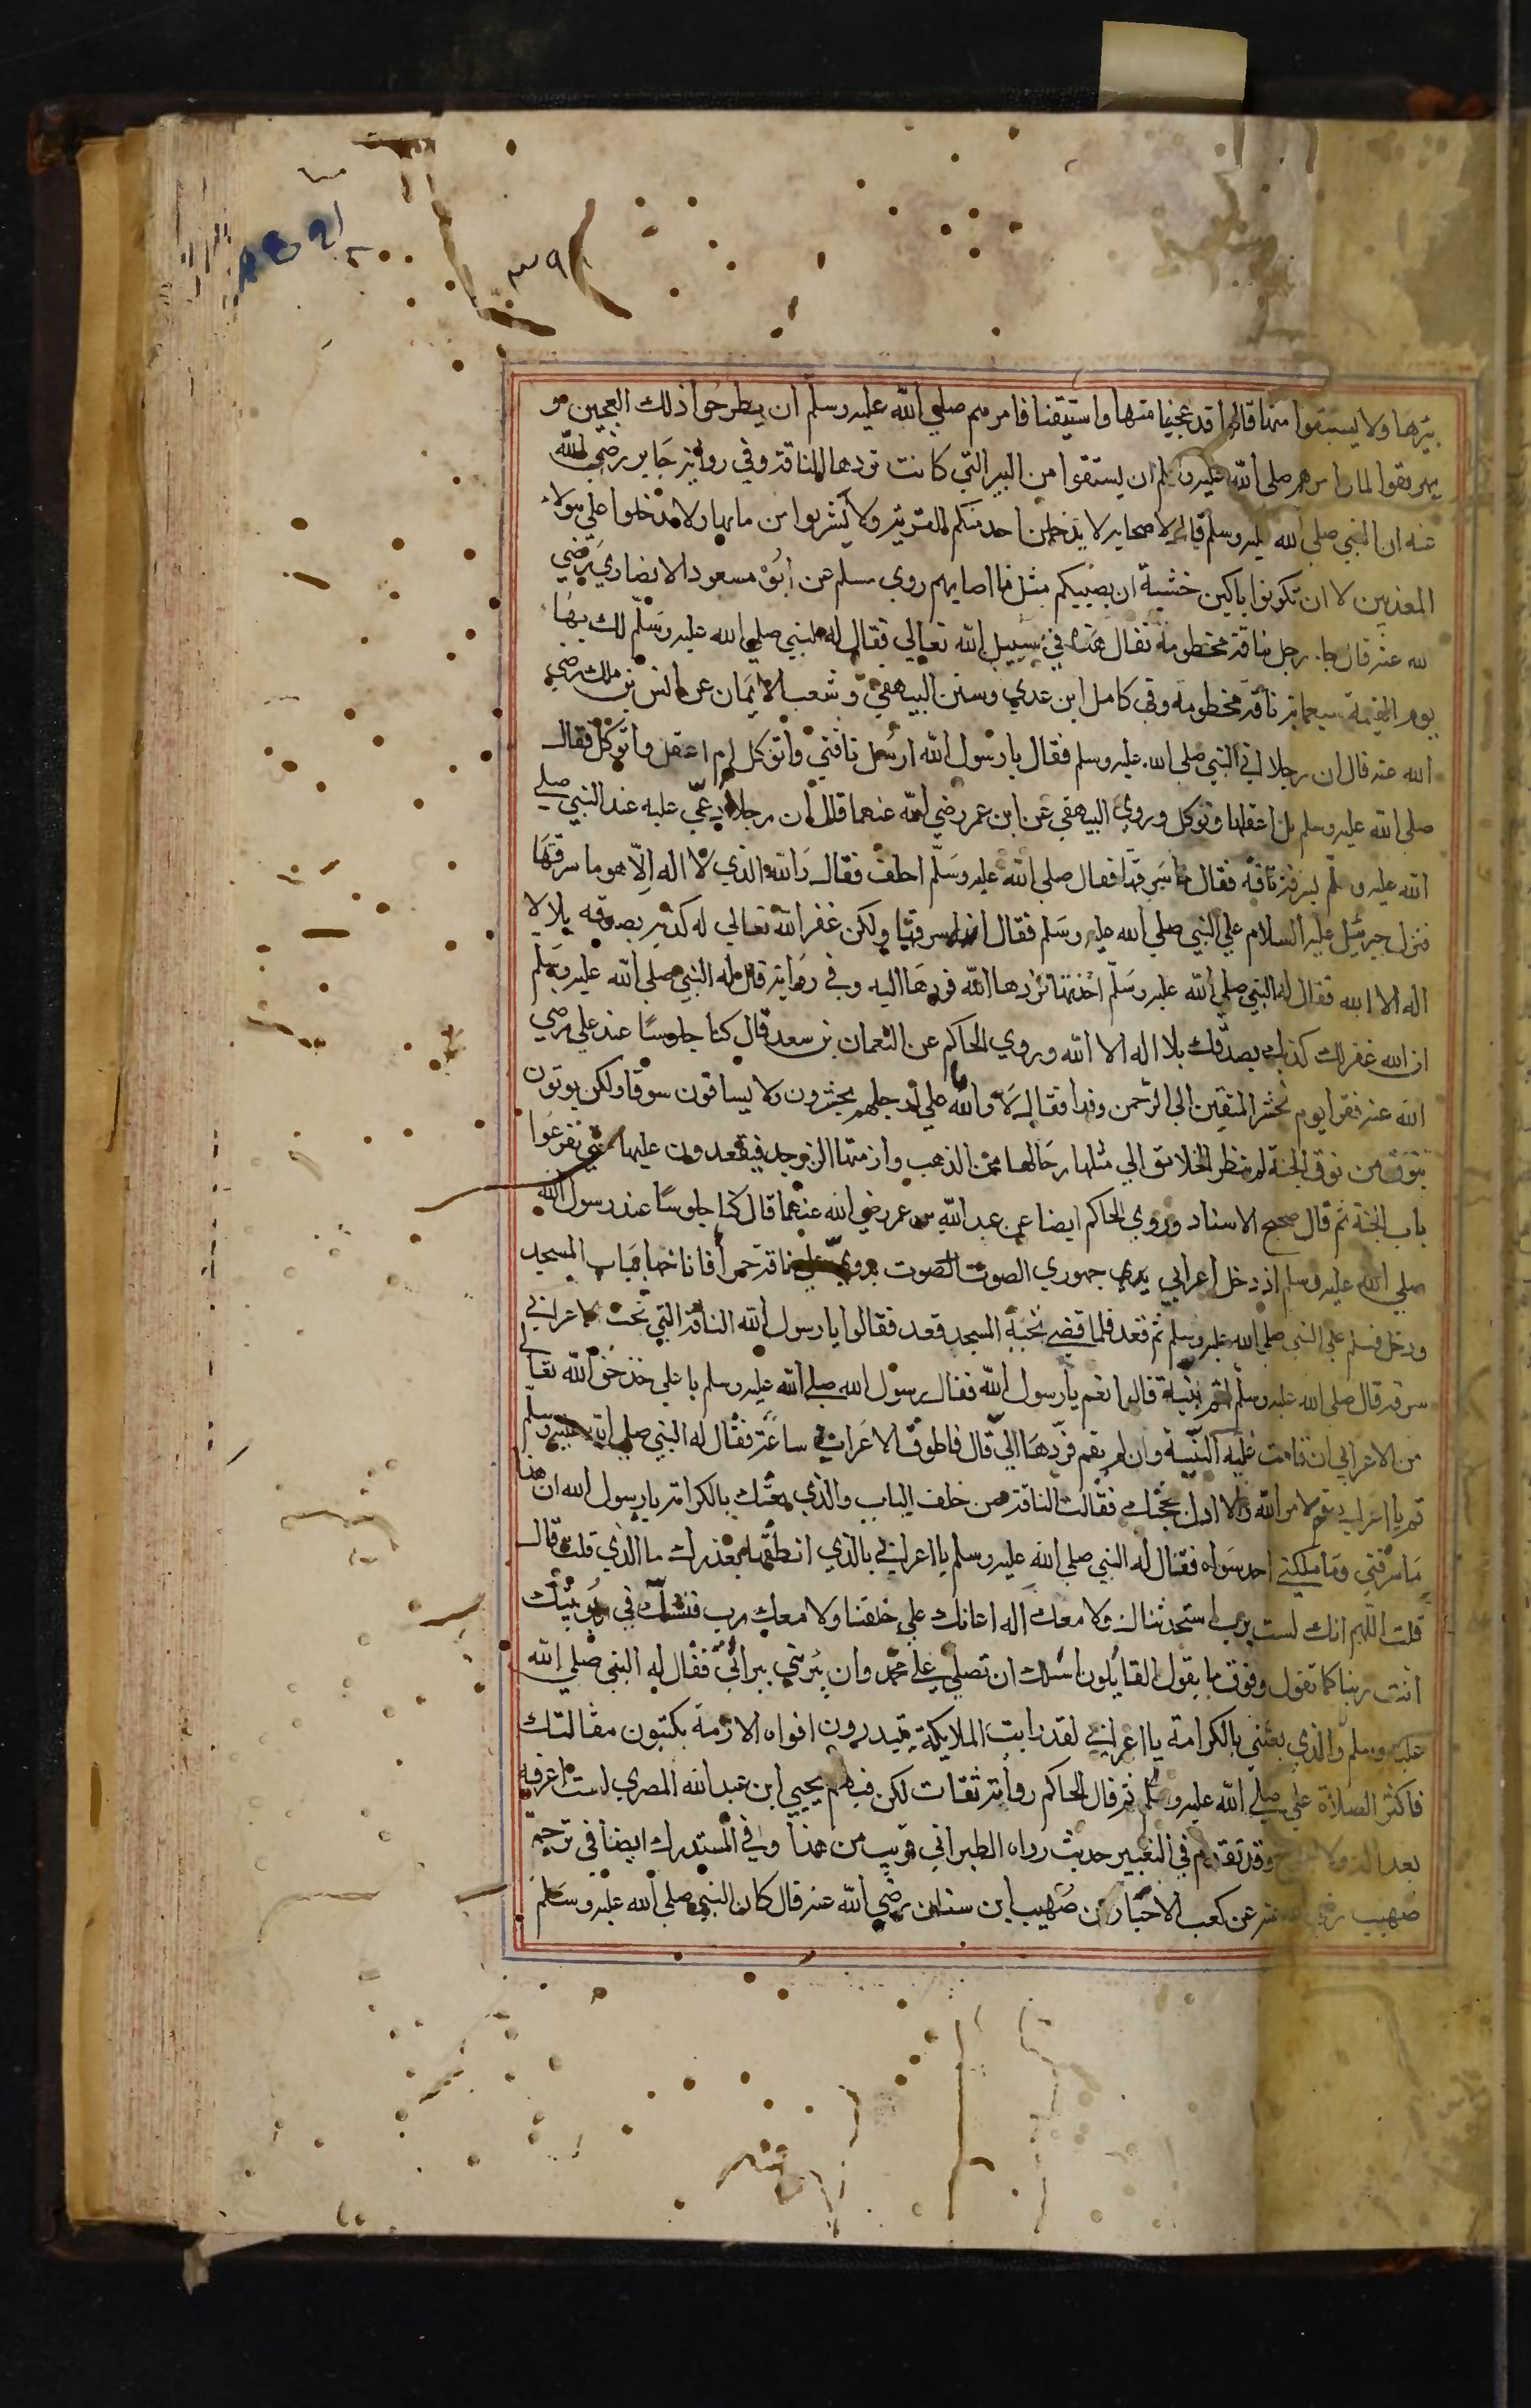 ٣٩١
بيرها ولا يستقوا منها قالوا قد عجنا منها واستقينا فامرهم صلي الله عليه وسلم ان يطرحوا ذلك العجين مو
يهريقوا الماء وامرهم صلي الله عليه وسلم ان يستقوا من البير التي كانت تردها الناقة وفي رواية جابر رضي الله
عنه ان النبي صلي الله عليه وسلم قال لاصحابه لا يدخلن احد منكم القرية ولا يشربوا من مايها ولا تدخلوا علي هولاء
المعذبين الا ان تكونوا باكين خشية ان يصيبكم مثل ما اصابهم روي مسلم عن ابو مسعود الانصاري رضي
لله عنه قال جاء رجل بناقة مخطومة فقال هذه في سبيل الله تعالي فقال له النبي صلي الله عليه وسلم لك بها
يوم القيمة سبعماية ناقة مخطومة وفي كامل ابن عدي وسنن البيهقي وشعب الايمان عن انس بن ملك رضي
الله عنه قال ان رجلا اتي النبي صلي الله عليه وسلم فقال يا رسول الله ارسل ناقتي واتوكل ام اعقل واتوكل فقال
صلي الله عليه وسلم بل اعقلها وتوكل وروي البيهقي عن ابن عمر رضي الله عنهما قال ان رجلا ادعي عليه عند النبي صلي
الله عليه وسلم بسرقة ناقة فقال ما سرقتها فقال صلي الله عليه وسلم احلف فقال والله الذي لا اله الا هو ما سرقتها
فنزل جبرئيل عليه السلام علي النبي صلي الله عليه وسلم فقال انه سرقها ولكن غفر الله تعالي له كذبه بصدقه بلا
اله الا الله فقال له النبي صلي الله عليه وسلم اخذتها تردها الله فردها اليه وفي رواية قال له النبي صلي الله عليه وسلم
ان الله غفر لك كذبك بصدقك بلا اله الا الله وروي الحاكم عن النعمان بن سعد قال كنا جلوسا عند علي رضي
الله عنه فقرا يوم نحشر المتقين الي الرحمن وفدا فقال لا والله ما علي ارجلهم يحشرون ولا يساقون سوقا ولكن يوتون
بنوق من نوق الجنة لم ينظر الخلايق الي مثلها رحالها من الذهب وازمتها الزبرجد فيقعدون عليها حتي يقرعوا
باب الجنة ثم قال صحيح الاسناد وروي الحاكم ايضا عن عبد الله بن عمر رضي الله عنهما قال كنا جلوسا عند رسول الله
صلي الله عليه وسلم اذ دخل اعرابي جهوري الصوت بدوي علي ناقة حمرا فاناخها بباب المسجد
ودخل فسلم علي النبي صلي الله عليه وسلم ثم قعد فلما قضي تحية المسجد قعد فقالوا يا رسول الله الناقة التي تحت الاعرابي
سرقة قال صلي الله عليه وسلم اثم بينة قالوا نعم يا رسول الله فقال رسول الله صلي الله عليه وسلم يا علي خذ حق الله تعالي
من الاعرابي ان قامت عليه البينة وان لم تقم فردها الي قال فاطرق الاعرابي ساعة فقال له النبي صلي الله عليه وسلم
قم يا اعرابي لامر الله والا ادل بحجتك فقالت الناقة من خلف الباب والذي بعثك بالكرامة يا رسول الله ان هذا
ما سرقني وما ملكني احد سواه فقال له النبي صلي الله عليه وسلم يا اعرابي بالذي انطقها بعذرك ما الذي قلت قال
قلت اللهم انك لست برب استحدثناك ولا معك اله اعانك علي خلقنا ولا معك رب فنشك في ربوبيتك
انت ربنا كما تقول وفوق ما يقول القايلون اسلك ان تصلي علي محمد وان تبريني ببراتي فقال له النبي صلي الله
عليه وسلم والذي بعثني بالكرامة يا اعرابي لقد رايت الملايكة يبتدرون افواه الازمة يكتبون مقالتك
فاكثر الصلاة علي صلي الله عليه وسلم ثم قال الحاكم رواته ثقات لكن فيهم يحيي ابن عبد الله المصري لست اعرفه
بعدالة ولا وقد تقدم في البعير حديث رواه الطبراني قريب من هذا وفي المستدرك ايضا في ترجمة
صهيب رضي الله عنه عن كعب الاحبار عن صهيب ابن سنان رضي الله عنه قال كان النبي صلي الله عليه وسلم